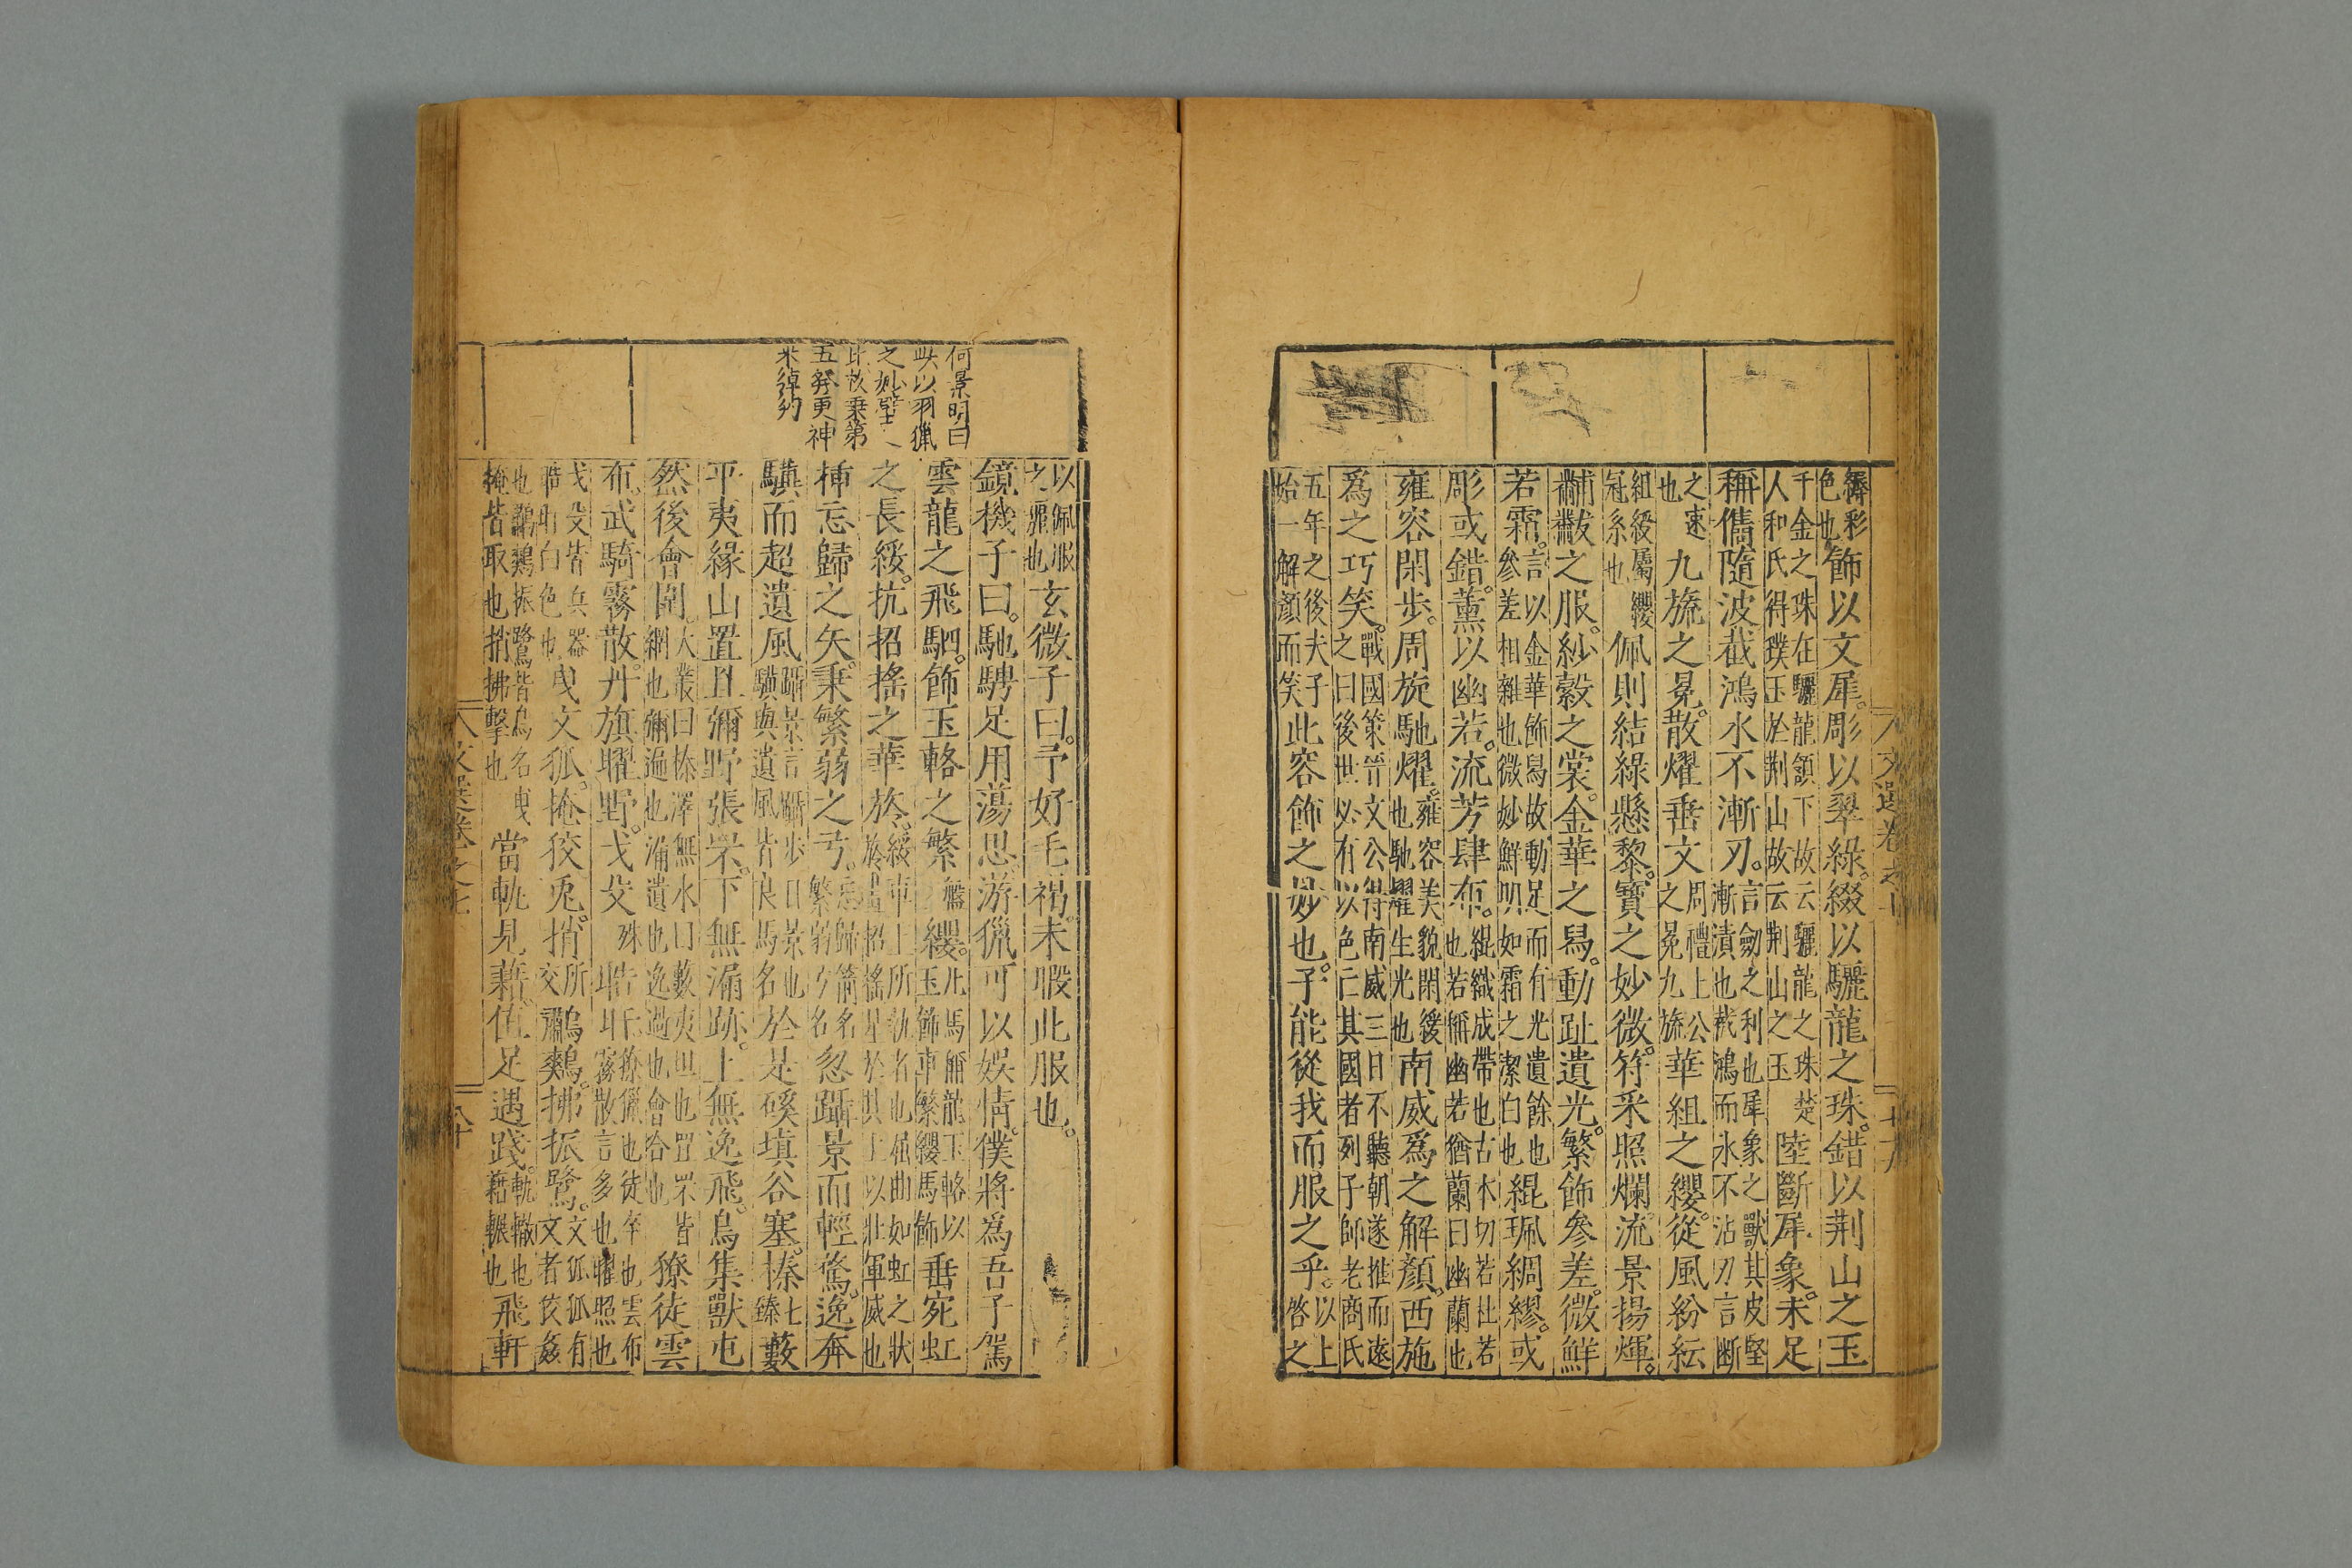 繻彩色也飾以文犀。彫以翠綠。綴以驪龍之珠。錯以荆山之玉
千金之珠在驪龍頷下故云驪龍之珠楚人和氏得璞玉於荆山故云荆山之玉陸斷犀象。未足
稱儁隨波截鴻水不漸刃。言劒之利也犀象之獸其皮堅漸漬也截鴻而水不沾刃言斷
之速也九旒之冕。散燿垂文周禮上公之冕九旒華組之纓。從風紛紜
組綬屬纓冠系也佩則結綠懸黎。寶之妙微。符釆照爛。流景揚煇。
黼黻之服。紗縠之裳。金華之舄。動趾遺光。繁飾參差。微鮮
若霜。言以金華飾舄故動足而有光遺餘也參差相雜也微妙鮮明如霜之潔白也緄珮綢繆。或
彫或錯。薰以幽若。流芳肆布。緄織成帶也古木切若杜若也若稱幽若猶蘭曰幽蘭也
雍容閑步。周旋馳燿。雍容美貌閑緩也馳耀生光也南威爲之解顏。西施
爲之巧笑。戰國策晉文公得南威三日不聽朝遂推而遠之曰後世必有以色亡其國者列子師老商氏
五年之後夫子始一解顏而笑此容飾之妙也。子能從我而服之乎。以上啓之
以佩服之麗也玄微子曰。予好毛褐。未暇此服也。
鏡機子曰。馳騁足用蕩思。游獵可以娛情。僕將爲吾子駕
雲龍之飛駟。飾玉輅之繁纓。此馬爾龍玉輅以玉飾車繁纓馬飾垂宛虹
之長綏。抗招搖之華旍。綏車上所執者也屈曲如虹之狀招搖星於其上以壯軍威也
揷忘歸之矢。秉繁弱之弓。忘歸箭名繁弱弓名忽躡景而輕騖。逸奔
驥而超遺風躡景言躡步日景也驥與遺風皆良馬名於是磎填谷塞。榛七臻藪
平夷緣山置罝彌野張罘。下無漏跡。上無逸飛。鳥集獸屯
然後會圍。大叢曰榛澤無水曰藪夷坦也罝罘皆網也彌遍也漏遺也逸過也會合也獠徒雲
布。武騎霧散。丹旗燿野。戈殳殊晧旰獠獵也徒卒也雲布霧散言多也燿照也
戈殳皆兵器晧旰白色也曳文狐。掩狡兎。捎所交鷫鷞。拂振鷺。文狐狐有文者狡姦
也鷫鷞振鷺皆鳥名曳掩皆取也捎拂擊也當軌見藉。值足遇踐。軌轍也藉輾也飛軒
何景明曰
此以羽獵
之妙
比故乗第
五發更神
來綽約
文選卷之七
七十九
八十